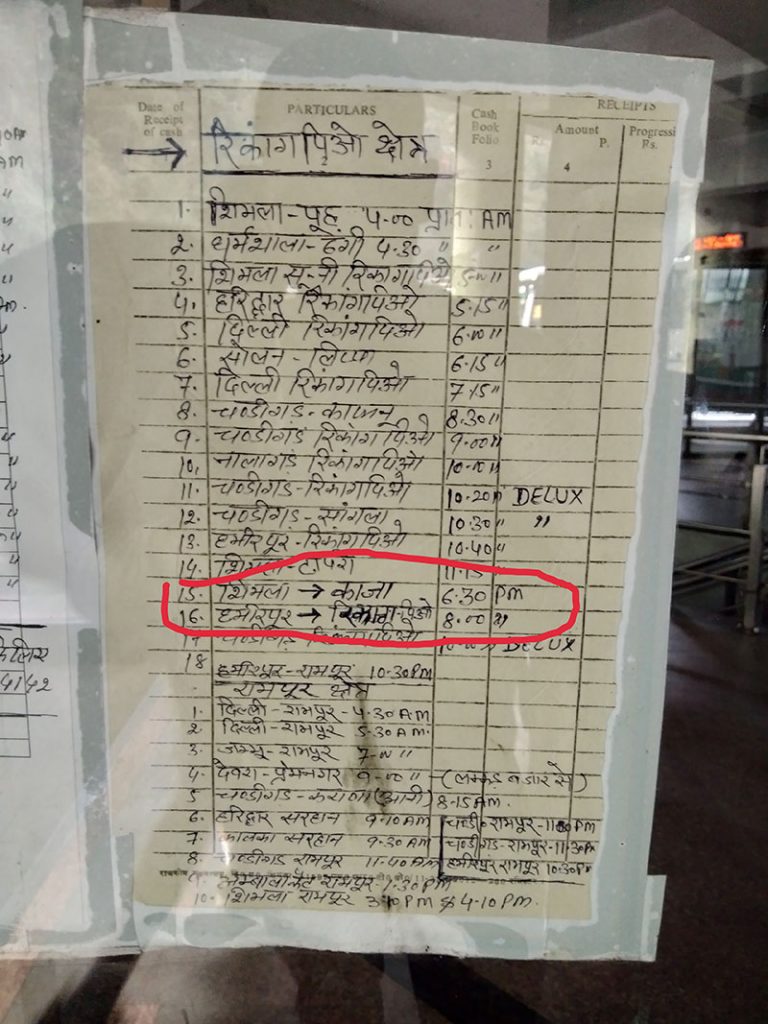 Date of Receipt of cash PARTICULARS Cash Book Folio RECEIPTS
3 Amount Rs. P. 4 Progressi Rs.
→ रिकांगपिओ क्षेत्र
1. शिमला - पूह 4.00 प्रातः AM
2. धर्मशाला - 4.30 " "
3. शिमला रिकांगपिओ "
4. हरिद्वार रिकांगपिओ 5.15 "
5. दिल्ली रिकांगपिओ 6.00 "
6. सोलन - 6.15 "
7. दिल्ली रिकांगपिओ 7.15 "
8. चण्डीगड - 8.30 "
9. चण्डीगड रिकांगपिओ 9.00 "
10. नालागड रिकांगपिओ 10.00 "
11. चण्डीगड - रिकांगपिओ 10.20 " DELUX
12. चण्डीगड - सांगला 10.30 " "
13. हमीरपुर - रिकांगपिओ 10.40 "
14. शिमला - टापरी 11.15
15. शिमला → काजा 6.30 PM
16. हमीरपूर → रिकांग-पिओ 8.00 "
17 चण्डीगड रिकांगपिओ DELUX
18 हमीरपूर - रामपूर 10.30PM
रामपूर क्षेत्र
1. दिल्ली - रामपूर - 4.30 AM
2. दिल्ली - रामपूर 5.30 AM.
3. जम्मू - रामपूर 7-00 "
4. - प्रेमनगर 9-00 "
5 चण्डीगड - 8.15 AM.
6. हरिद्वार सरहान 9.10 AM चण्डी० रामपूर -
7. कालका सरहान 9.30 AM चण्डीगड - रामपूर - 11.30PM
8. चण्डीगड रामपूर 11-40 AM हमीरपूर रामपूर 10.30PM
9. रामपूर - 1.30 PM
10. शिमला रामपूर 3.10 PM & 4.10 PM.